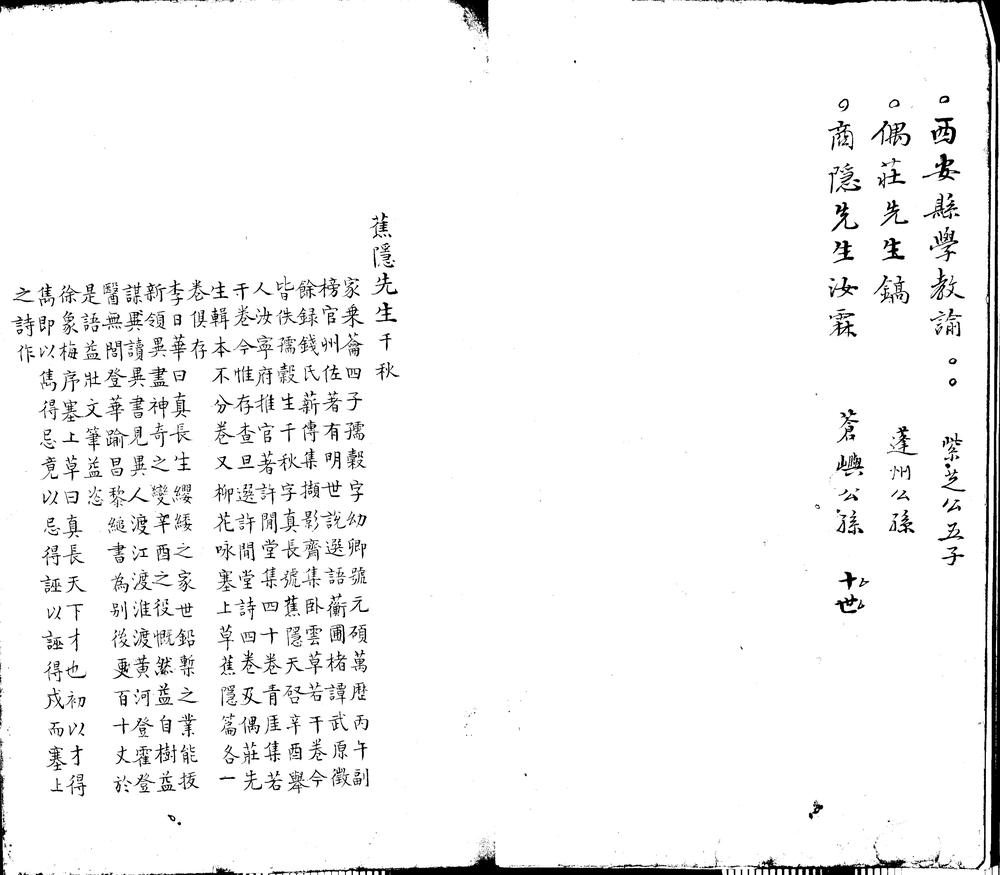 西安縣學教諭 紫芝公五子
偶莊先生鎬 蓬州公孫
商隱先生汝霖 蒼嶼公孫 十世
蕉隱先生千秋
家乗菕四子孺榖字幼卿號元碩萬歷丙午副
榜官州佐著有明世說選語蘅圃楮譚武原徵
餘録錢氏薪傳集擷影齊集卧雲草若干卷今
皆佚孺榖生千秋字真長號蕉隱天啓辛酉舉
人汝寧府推官著許閒堂集四十卷青厓集若
干卷今惟存查旦選許閒堂詩四卷及偶莊先
生輯本不分卷又柳花咏塞上草蕉隱篇各一
卷俱存
李日華曰真長生纓緌之家世鉛槧之業能扳
新領異盡神奇之變辛酉之役慨然益自樹益
謀異讀異書見異人渡江渡淮渡黃河登霍登
醫無閭登華踰昌黎縋書為别後更百十丈於
是語益壯文筆益恣
徐象梅序塞上草曰真長天下才也初以才得
雋即以雋得忌竟以忌得誣以誣得戍而塞上
之詩作